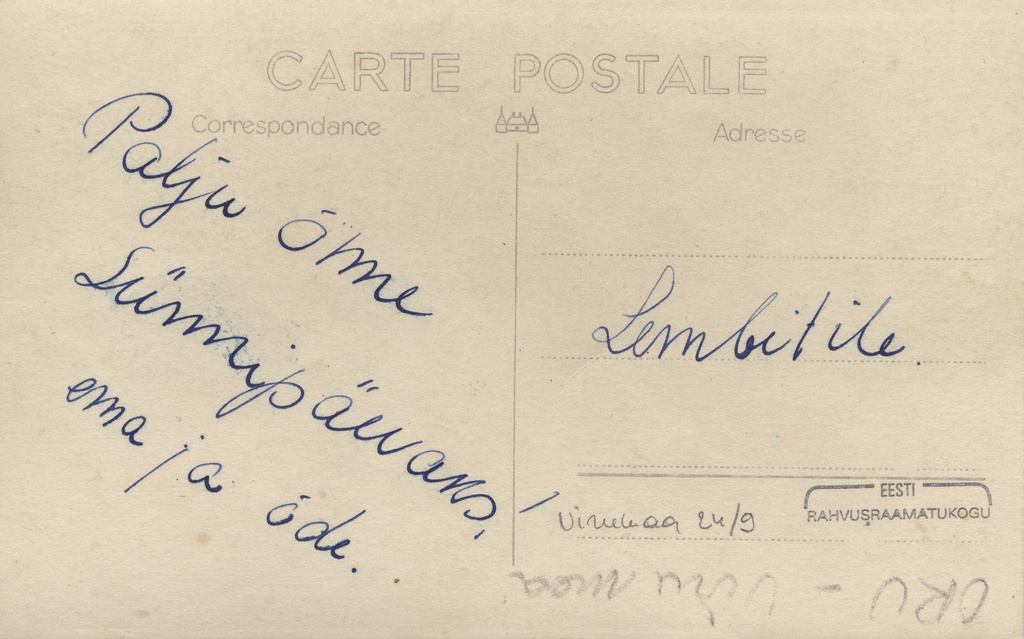 CARTE POSTALE
Correspondance
Adresse
Palju õnne
Sünnipäevaks!
ema ja õde.
Lembitile.
Virumaa 24/9
EESTI
RAHVUSRAAMATUKOGU
ORU - Virumaa